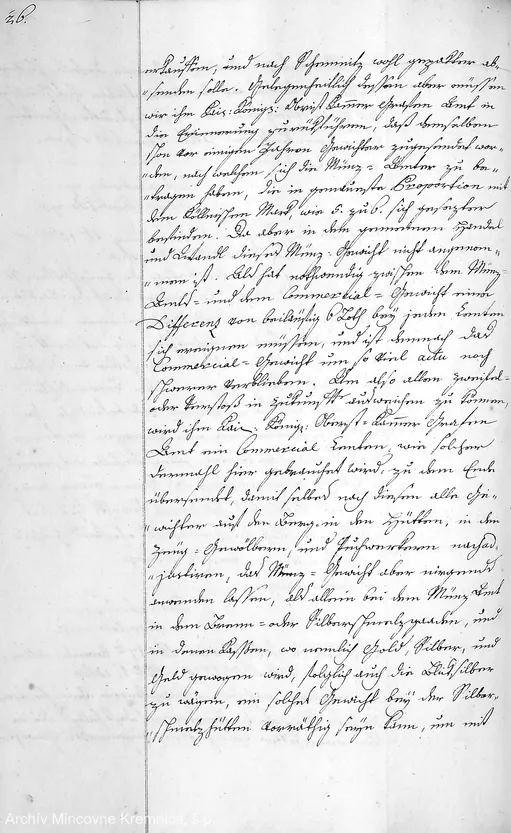 26.
erkauffen, und nach Schemnitz wohl gepakter ab-
"senden solle. Gelegenheitlich dessen aber müssen
wir ihm Kais: Königl: Obrist Kamer Grafen Amt in
die Erinnerung zurükführen, daß demselben
schon vor einigen Jahren Gewichter zugesendet wor-
"den, nach welchen sich die Münz-Ämter zu be-
"tragen haben, die in genaueste Proportion mit
dem Köllnischen Mark, wie 5. zu 6. sich gesezter
befinden. Da aber in dem gemeinen Handel
und Wandl dieses Münz-Gewicht nicht angenom-
"men ist. Als hat nothwendig zwischen dem Münz-
Amts- und dem Commercial-Gewicht eine
Differenz von beiläufig 6 Loth bey jeden Centen
sich ereignen müssen, und ist demnach das
Commercial-Gewicht um so viel actu noch
schwerer verblieben. Um also allen Zweifel-
oder Verstoß in Zukunft ausweichen zu können,
wird ihm Kais: König: Oberst-Kamer Grafen
Amt ein Commercial Centen, wie solcher
dermahl hier gebrauchet wird, zu dem Ende
übersendet, damit selbes nach diesen alle Ge-
"wichter auf den Berg- in den Hütten, in den
Zeug-Gewölbern, und Puchwerkeren nach ad-
"justiren, das Münz-Gewicht aber nirgends
anwenden lassen, als allein bei dem Münz Amt
in dem Brenn- oder Silberschmelzgaaden, und
in denen Kassen, wo nemlich Gold, Silber, und
Geld gewogen wird, folglich auch die Bliksilber
zu wägen, ein solches Gewicht bey der Silber-
"schmelzhütten vorräthig seyn kann, um mit
Archív Mincovne Kremnica, š.p.